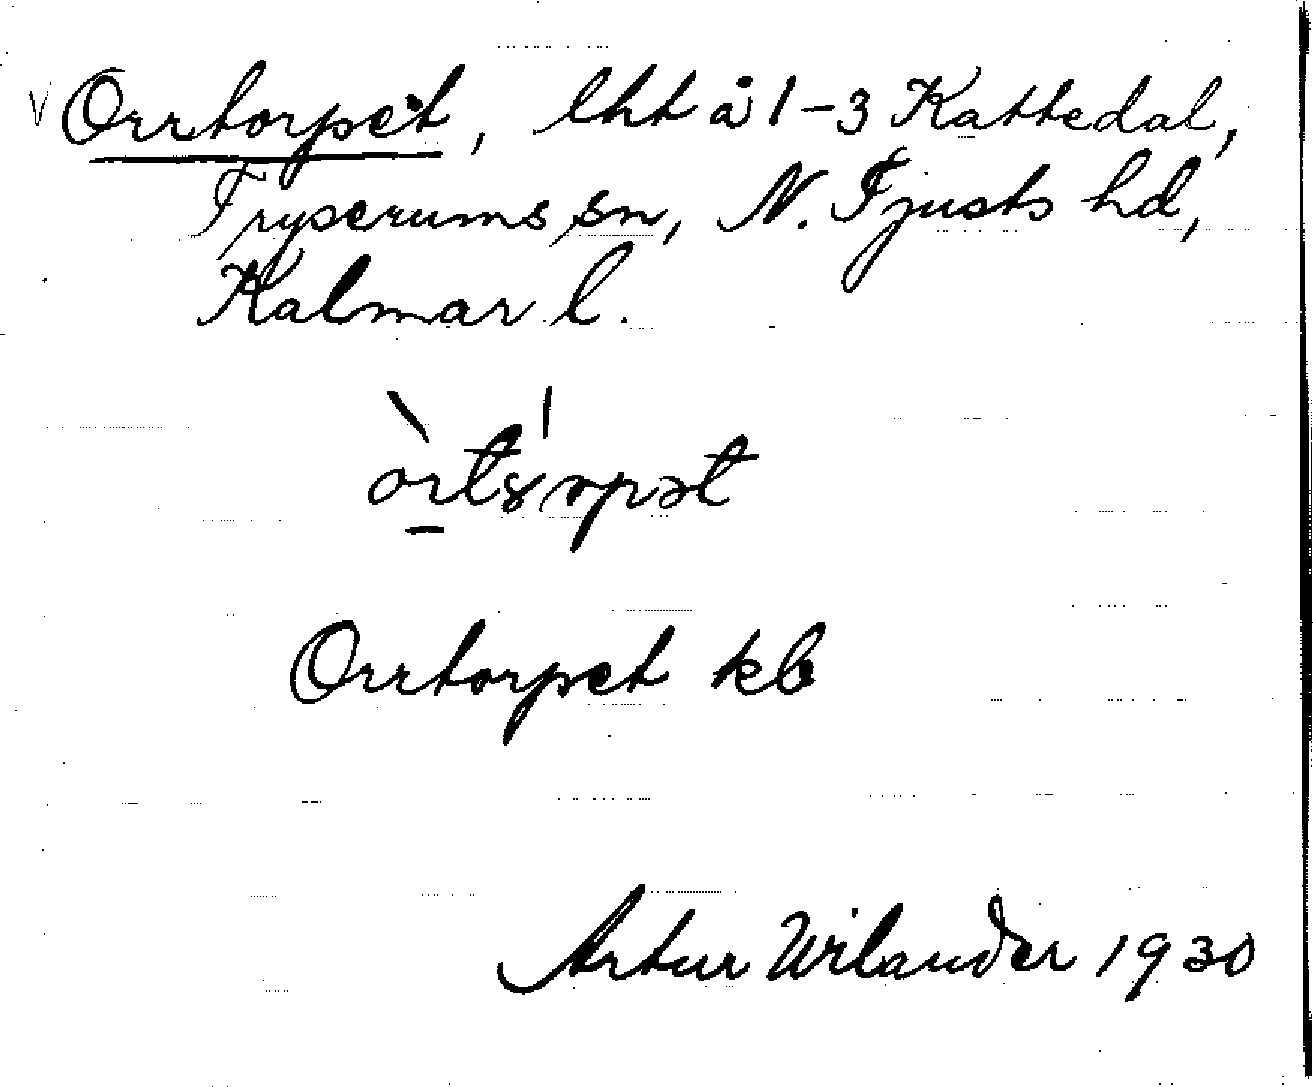 V Orrtorpet, lht å 1-3 Kattedal,
Tryserums sn, N. Tjusts hd,
Kalmar l.
Orrtorpet kb
Artur Wilander 1930